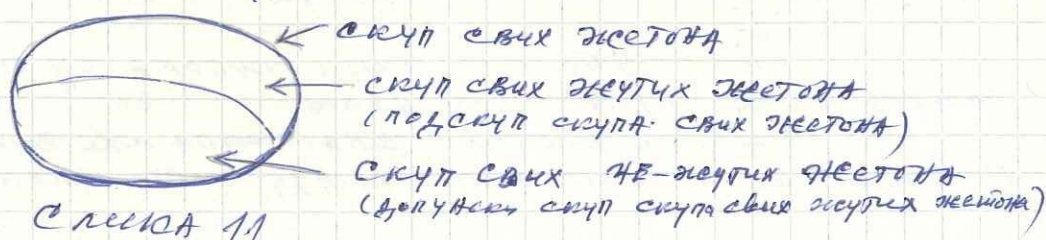 СКУП СВИХ ЖЕТОНА
СКУП СВИХ ЖУТИХ ЖЕТОНА
(ПОДСКУП СКУПА СВИХ ЖЕТОНА)
СКУП СВИХ НЕ-ЖУТИХ ЖЕТОНА
(ДОПУНСКИ СКУП СКУПА СВИХ ЖУТИХ ЖЕТОНА)
СЛИКА 11